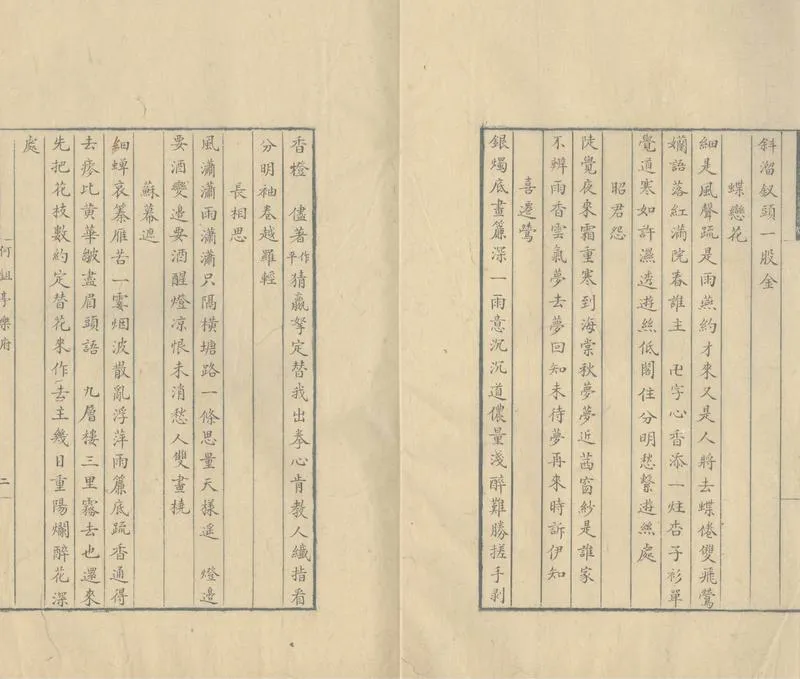 斜溜釵頭一股金
蝶戀花
細是風聲疏是雨燕約才來又是人將去蝶倦雙飛鶯
嬾語落紅滿院春誰主　卍字心香添一炷杏子衫單
覺道寒如許濕透遊絲低閣住分明愁繫遊絲處
昭君怨
陡覺夜來霜重寒到海棠秋夢夢近茜窗紗是誰家
不辨雨香雲氣夢去夢回知未待夢再來時訴伊知
喜遷鶯
銀燭底畫簾深一雨意沉沉道儂量淺醉難勝搓手剥
香橙　儘著平作猜贏拏定替我出拳心肯教人纖指看
分明袖卷越羅輕
長相思
風瀟瀟雨瀟瀟只隔橫塘路一條思量天樣遥　燈邊
要酒變邊要酒醒燈凉恨未消愁人雙畫橈
蘇幕遮
細蟬哀箏雁苦一霎烟波散亂浮萍雨簾底疏香通得
去瘮比黄華皺盡眉頭語　九層樓三里霧去也還來
先把花枝數約定替花來作去主幾日重陽爛醉花深
處
亭樂府
二